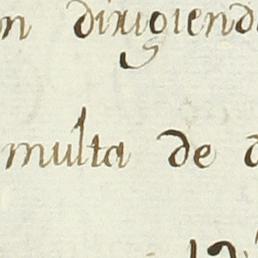 n dirigiend
multa de